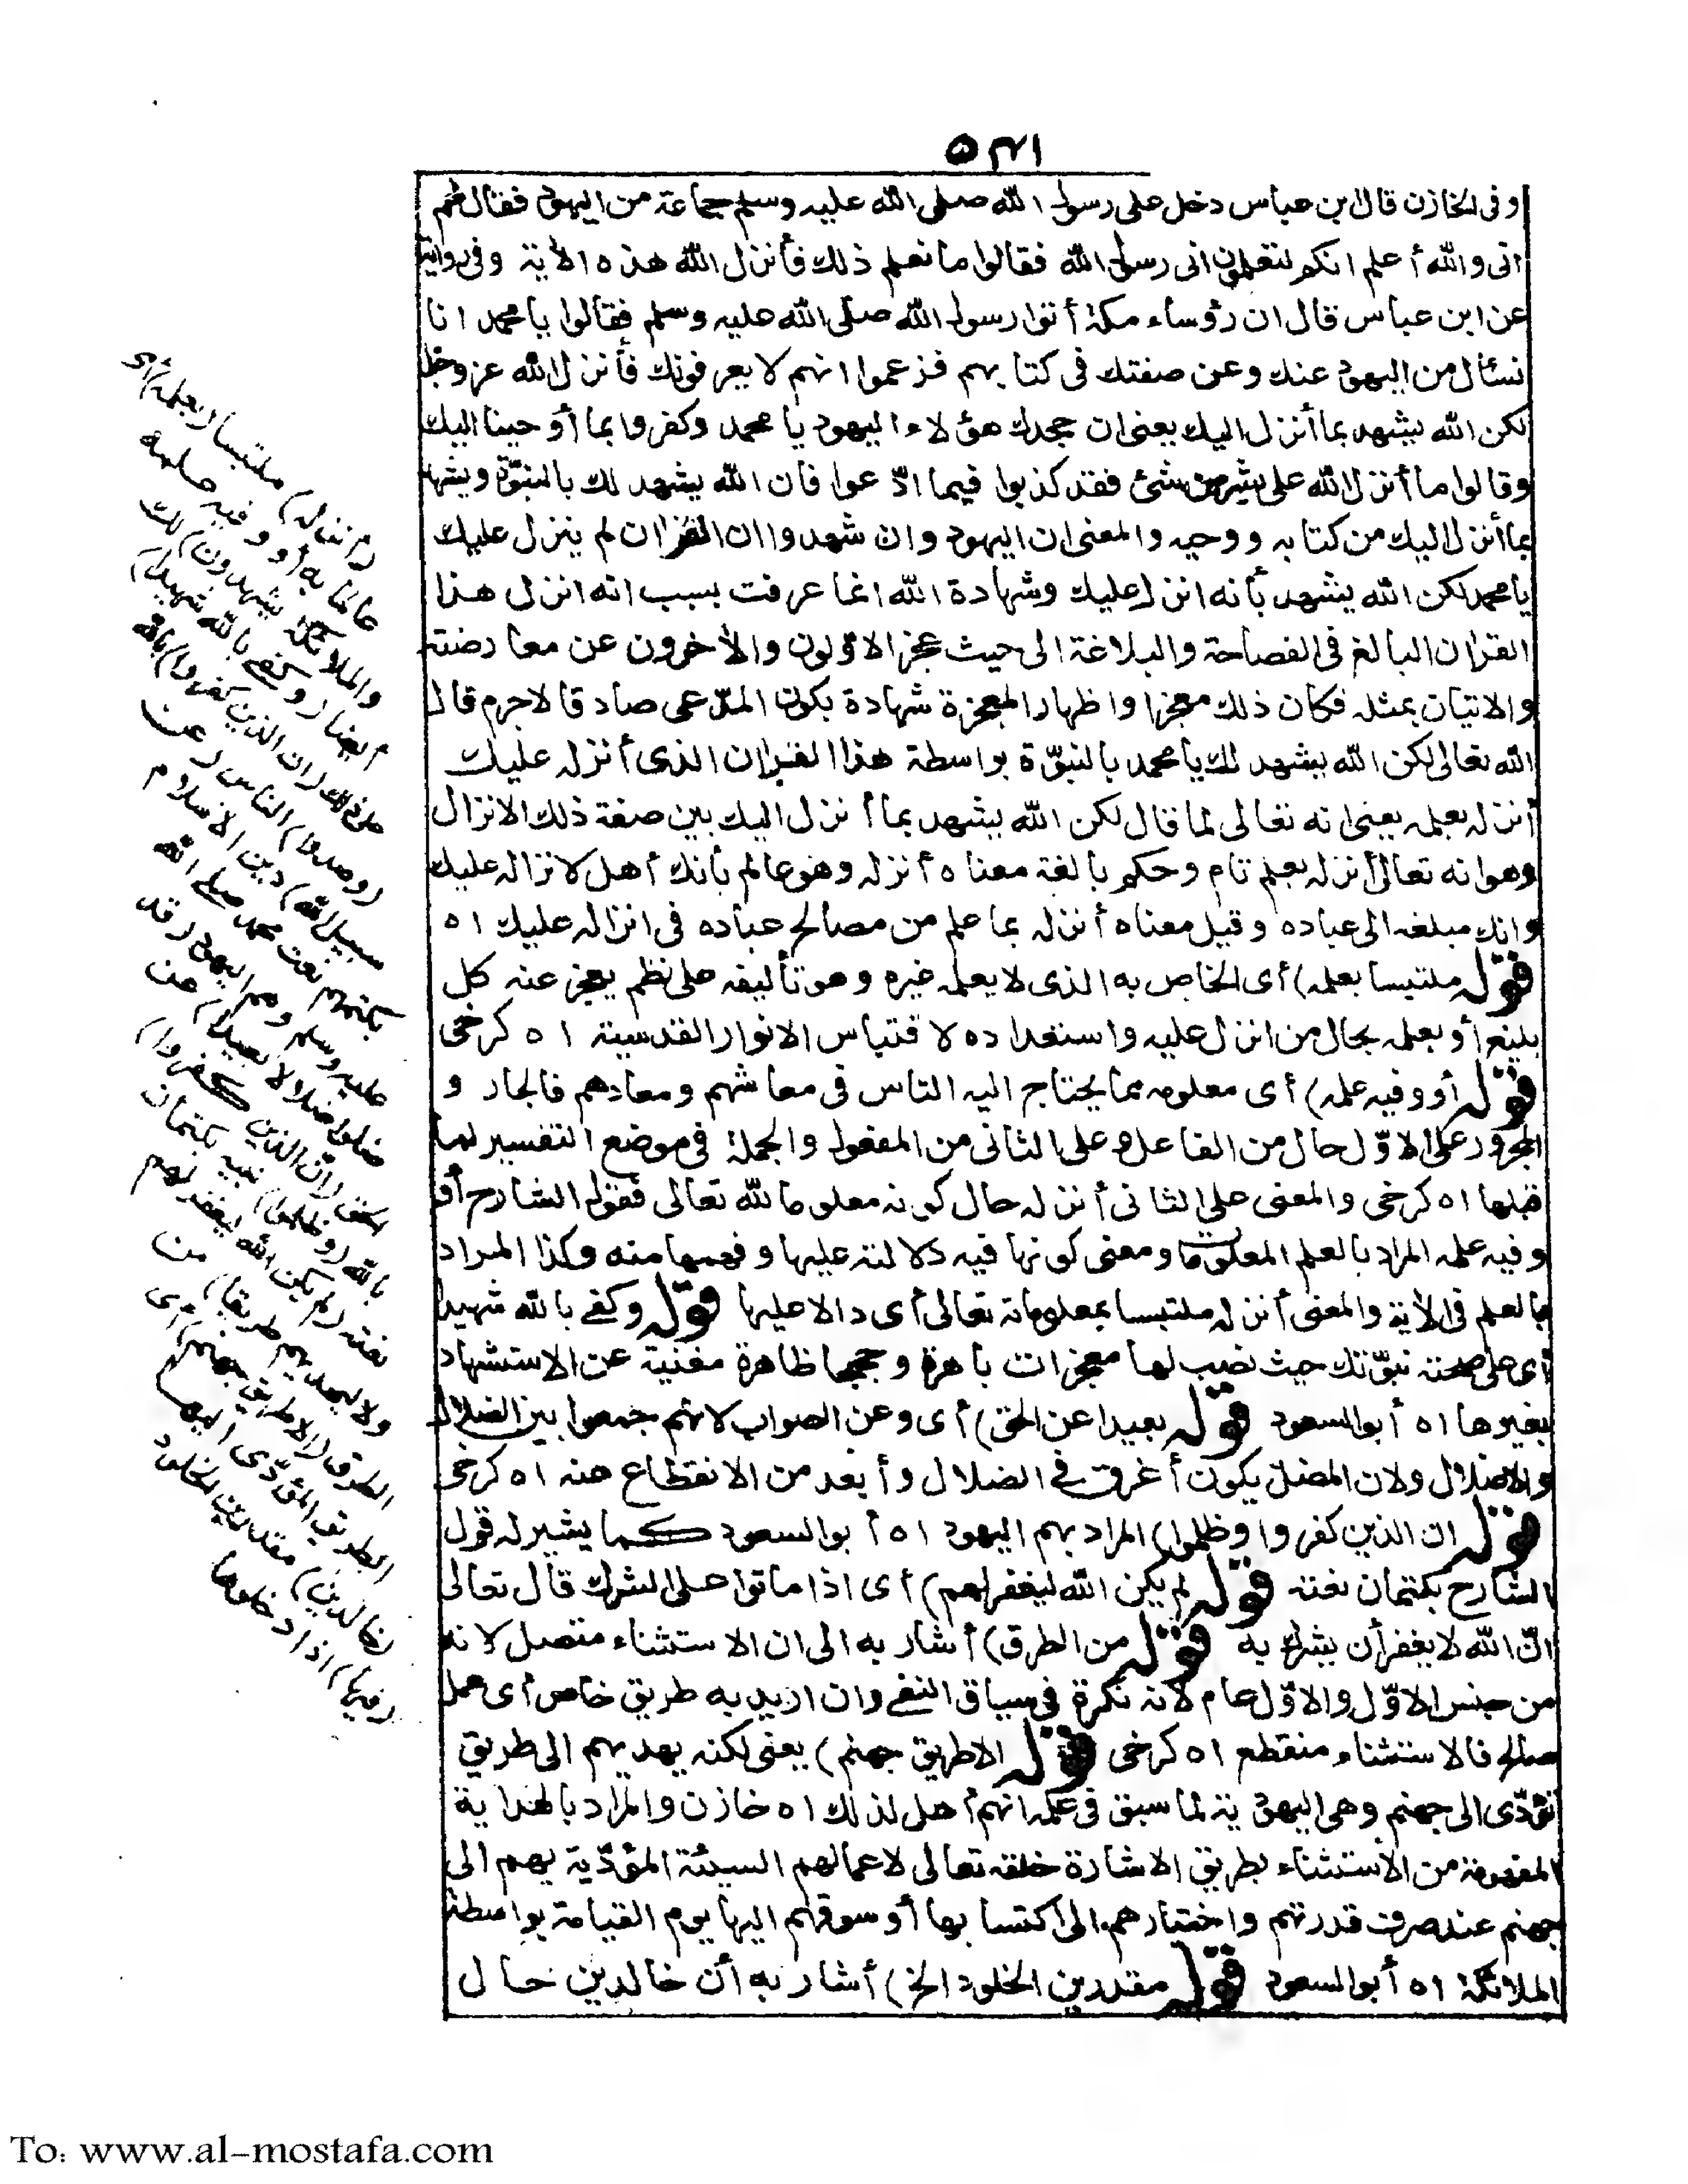 ٥٣١
وفى الخازن قال ابن عباس دخل على رسول الله صلى الله عليه وسلم جماعة من اليهود فقال لهم
انى والله أعلم انكم لتعلمون انى رسول الله فقالوا ما نعلم ذلك فأنزل الله هذه الآية وفى رواية
عن ابن عباس قال ان رؤساء مكة أتوا رسول الله صلى الله عليه وسلم فقالوا يا محمد انا
نسئال من اليهود عنك وعن صفتك فى كتابهم فزعموا انهم لا يعرفونك فأنزل الله عز وجل
لكن الله يشهد بما أنزل اليك يعنى ان جحدك هؤلاء اليهود يا محمد وكفروا بما أوحينا اليك
وقالوا ما أنزل الله على بشر من شئ فقد كذبوا فيما ادّعوا فان الله يشهد لك بالنبوّة ويشهد
بما أنزل اليك من كتابه ووحيه والمعنى ان اليهود وان شهدوا ان القرآن لم ينزل عليك
يا محمد لكن الله يشهد بأنه انزل عليك وشهادة الله انما عرفت بسبب انه انزل هذا
القرآن البالغ فى الفصاحة والبلاغة الى حيث عجز الاوّلون والآخرون عن معارضته
والاتيان بمثله فكان ذلك معجزا واظهار المعجزة شهادة بكون المدّعى صادقا لا جرم قال
الله تعالى لكن الله يشهد لك يا محمد بالنبوّة بواسطة هذا القرآن الذى أنزله عليك
أنزله بعلمه يعنى انه تعالى لما قال لكن الله يشهد بما أنزل اليك بين صفة ذلك الانزال
وهو انه تعالى أنزله بعلم تام وحكم بالغة معناه أنزله وهو عالم بأنك أهل لانزاله عليك
وانك مبلغه الى عباده وقيل معناه أنزله بما علم من مصالح عباده فى انزاله عليك اه
قوله ملتبسا بعلمه) أى الخاص به الذى لا يعلمه غيره وهو تأليفه على نظم يعجز عنه كل
بليغ أو بعلمه بحال من انزل عليه واستعداده لاقتباس الانوار القدسية اه كرخى
قوله أو وفيه علمه) أى معلومه مما يحتاج اليه الناس فى معاشهم ومعادهم فالجار و
المجرور على الاوّل حال من الفاعل وعلى الثانى من المفعول والجملة فى موضع التفسير لما
قبلها اه كرخى والمعنى على الثانى أنزله حال كونه معلوما لله تعالى فقول الشارح أو
وفيه علمه المراد بالعلم المعلومات ومعنى كونها فيه دلالته عليها وفهمها منه وكذا المراد
بالعلم فى الآية والمعنى أنزله ملتبسا بمعلوماته تعالى أى دالا عليها قوله وكفى بالله شهيدا
أى على صحته نبوّتك حيث نصب لها معجزات باهرة وحججا ظاهرة مغنية عن الاستشهاد
بغيرها اه أبو السعود قوله بعيدا عن الحق) أى وعن الصواب لانهم جمعوا بين الضلال
والاضلال ولان المضل يكون أغرق فى الضلال وأبعد من الانقطاع عنه اه كرخى
قوله ان الذين كفروا وظلموا) المراد بهم اليهود اه أبو السعود كما يشير له قول
الشارح بكتمان نعته قوله لم يكن الله ليغفر لهم) أى اذا ماتوا على الشرك قال تعالى
انّ الله لا يغفر أن يشرك به قوله من الطرق) أشار به الى ان الاستثناء متصل لانه
من جنس الاوّل والاوّل عام لانه نكرة فى سياق النفى وان اريد به طريق خاص أى عمل
صالح فالاستثناء منقطع اه كرخى قوله الا طريق جهنم) يعنى لكنه يهديهم الى طريق
تؤدّى الى جهنم وهى اليهودية لما سبق فى علمه انهم أهل لذلك اه خازن والمراد بالهداية
المفهومة من الاستثناء بطريق الاشارة خلقه تعالى لاعمالهم السيئة المؤدّية بهم الى
جهنم عند صرف قدرتهم واختيارهم الى اكتسابها أو سوقهم اليها يوم القيامة بواسطة
الملائكة اه أبو السعود قوله مقدرين الخلود الخ) أشار به أن خالدين حال
(أنزله) ملتبسا (بعلمه) أى
عالما به أو وفيه علمه
والملائكة يشهدون) لك
أيضا (وكفى بالله شهيدا)
على ذلك (ان الذين كفروا) بالله
(وصدوا) الناس (عن
سبيل الله) دين الاسلام
بكتمهم نعت محمد صلى الله
عليه وسلم وهم اليهود (قد
ضلوا ضلالا بعيدا) عن
الحق (انّ الذين كفروا)
بالله (وظلموا) نبيه بكتمان
نعته (لم يكن الله ليغفر لهم
ولا ليهديهم طريقا) من
الطرق (الا طريق جهنم) أى
الطريق المؤدّى اليها
(خالدين) مقدرين الخلود
(فيها) اذا دخلوها
To: www.al-mostafa.com